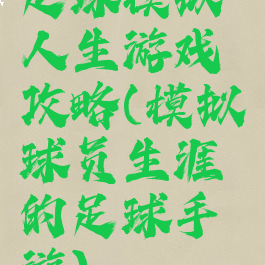 足球模拟
人生游戏
攻略(模拟
球员生涯
的足球手
游)